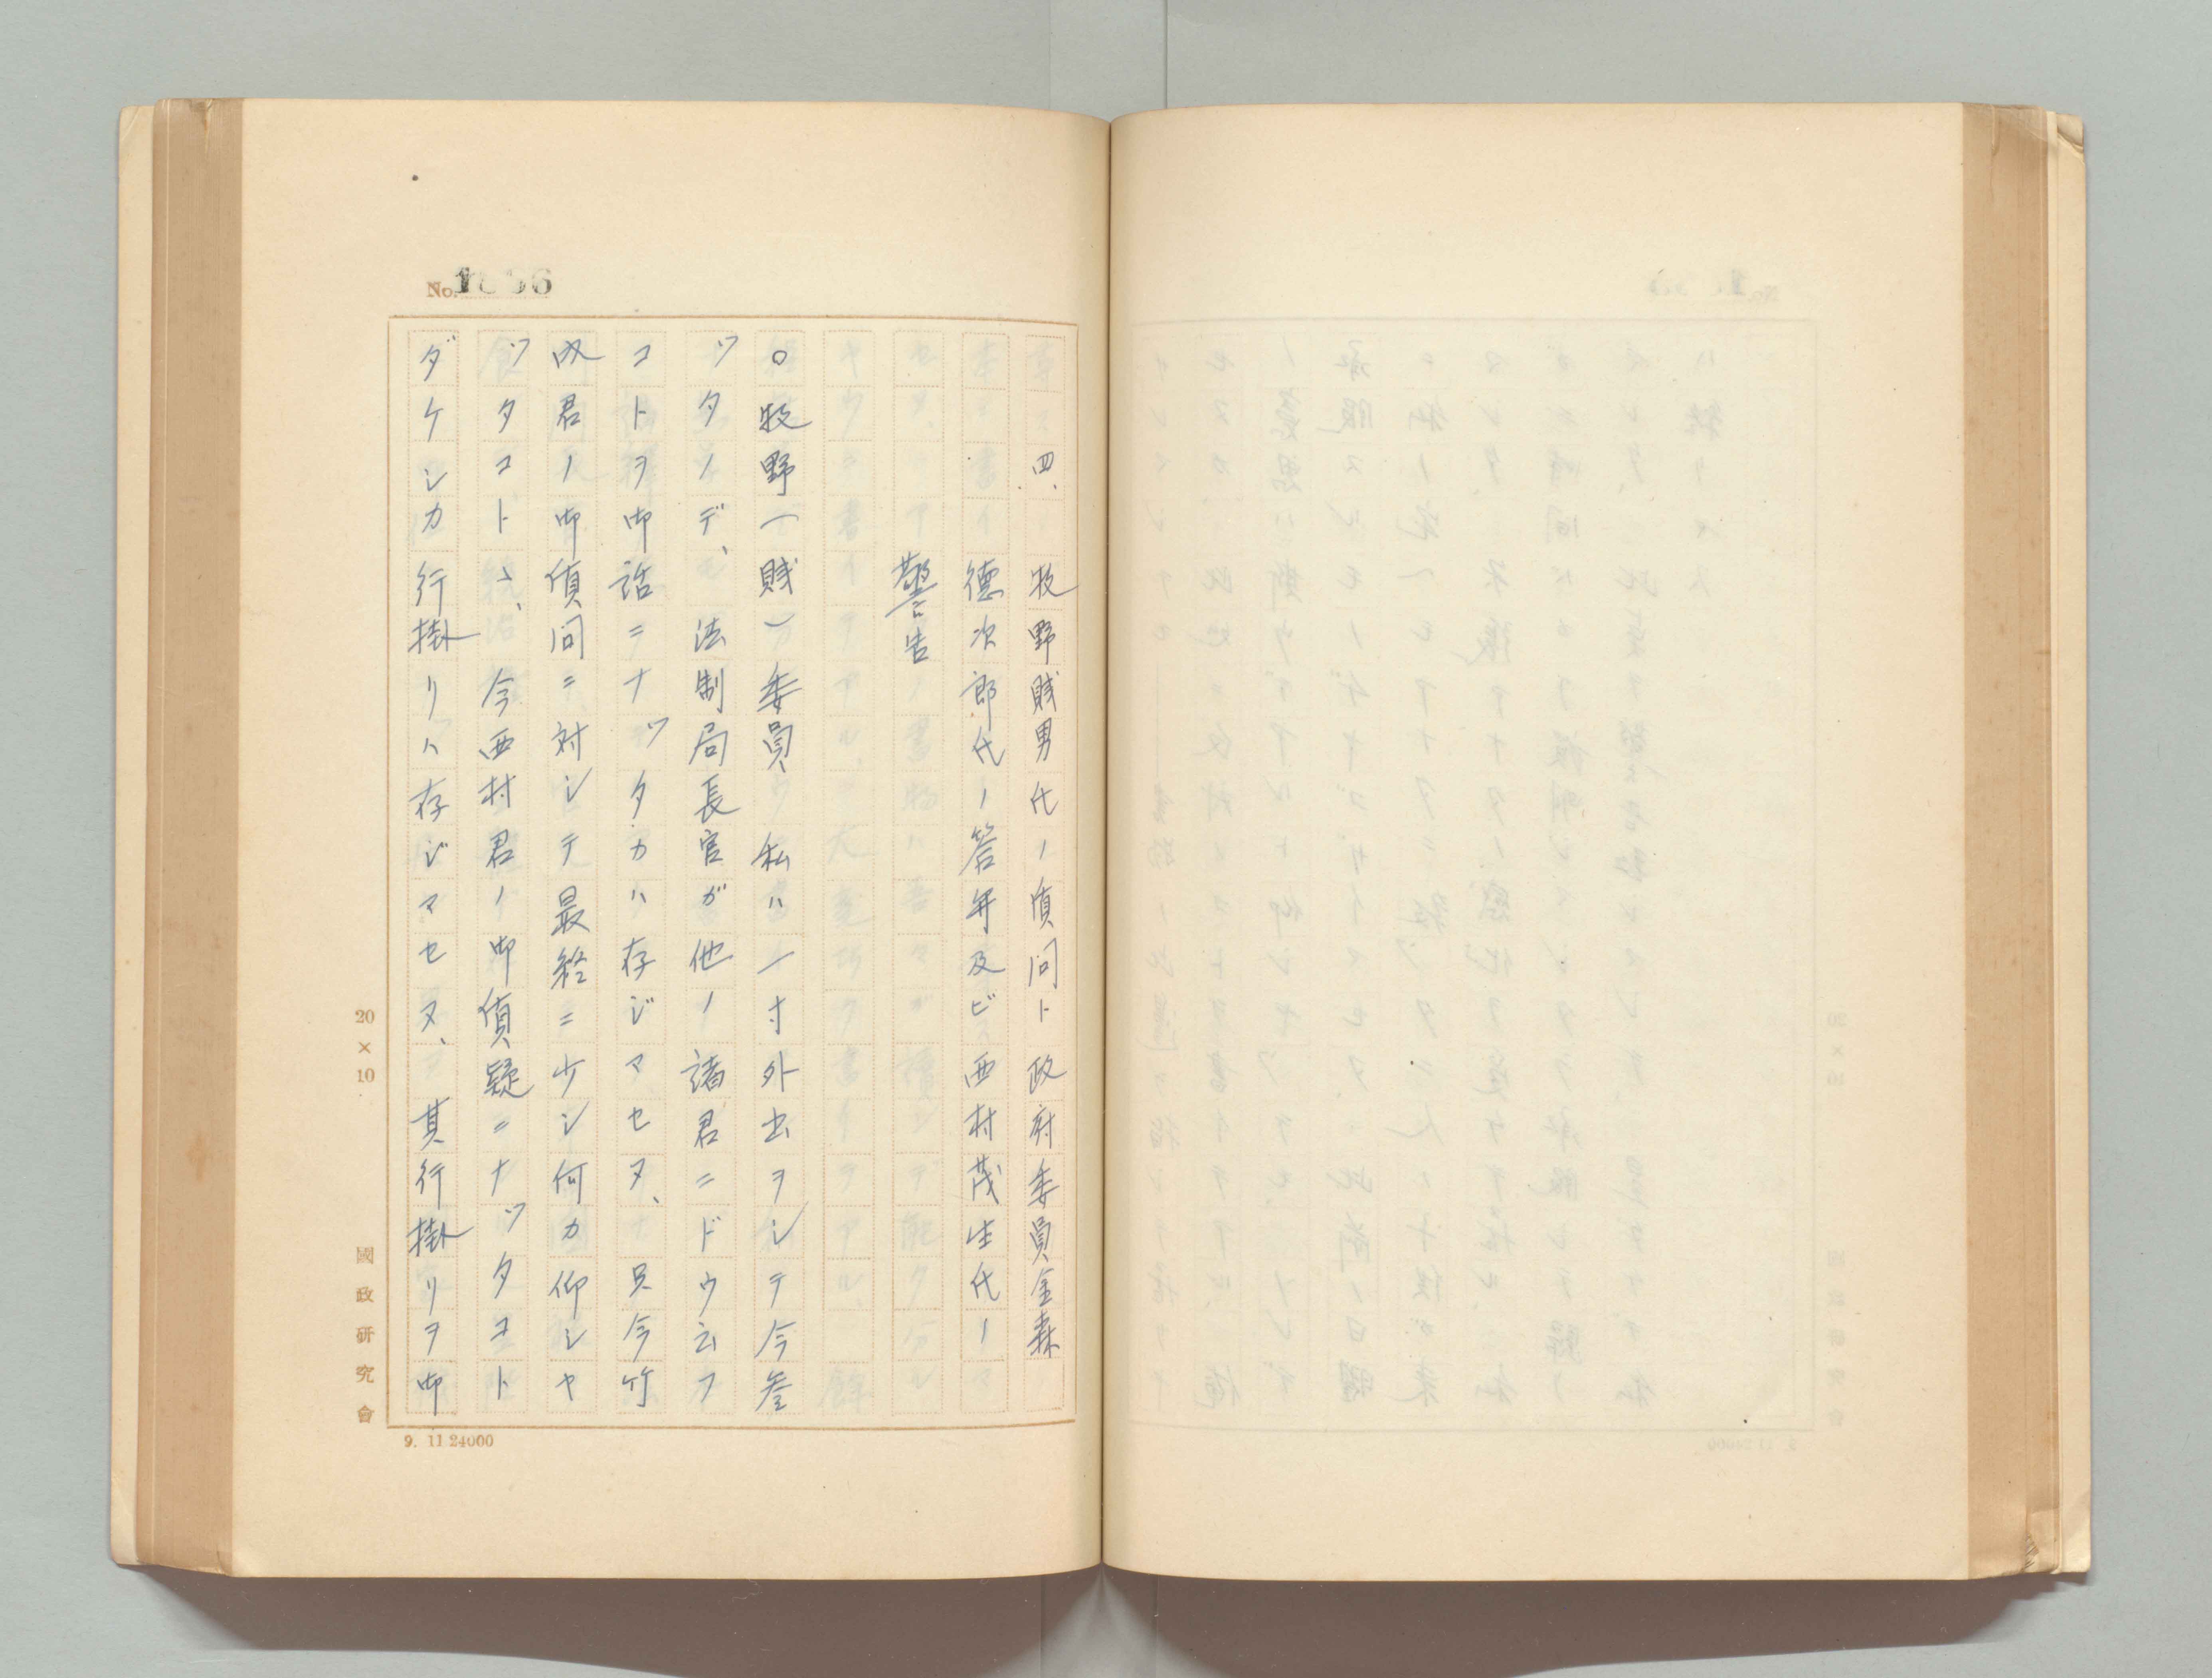 四、牧野賤男代ノ質問ト政府委員金森
德次郎代ノ答弁及ビ西村茂生代ノ
警告
○牧野(賤)委員 私ハ一寸外出ヲシテ今参
ツタノデ、法制局長官ガ他ノ諸君ニドウ云フ
コトヲ御話ニナツタカハ存ジマセヌ、只今竹
内君ノ御質問ニ対シテ最終ニ少シ何カ仰シヤ
ツタコトト、今西村君ノ御質疑ニナツタコト
ダケシカ行掛リハ存ジマセヌ、其行掛リヲ御
20×10
國政硏究會
9. 11 24000